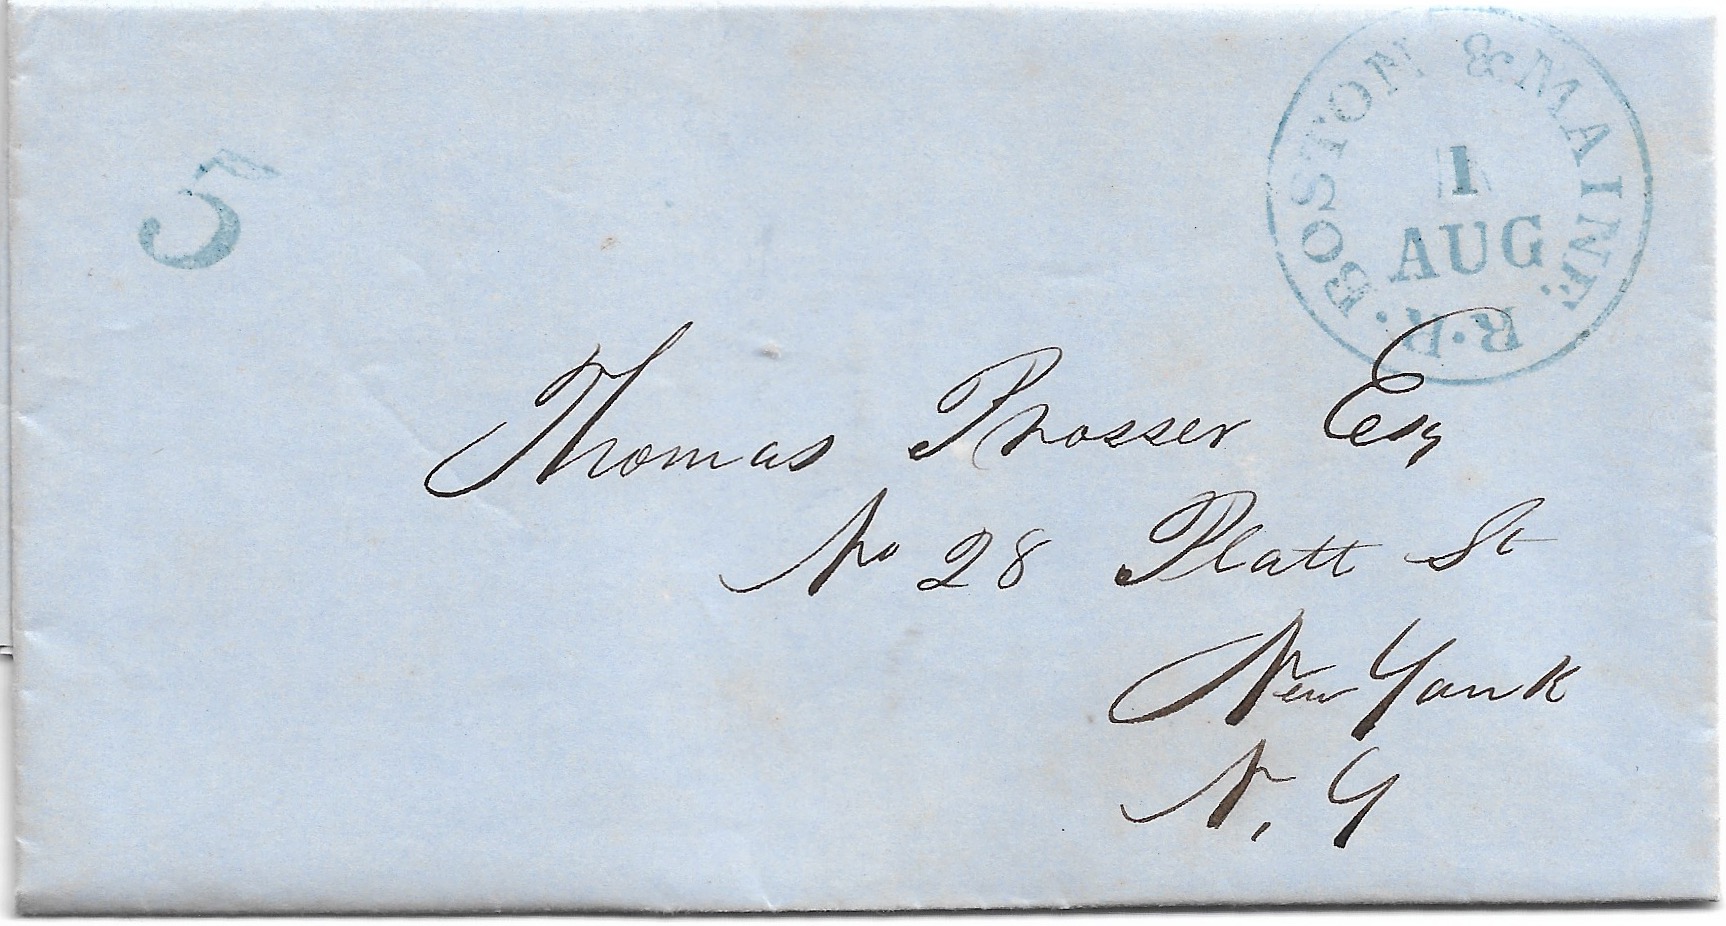 5
BOSTON & MAINE. R.R.
1
AUG
Thomas Prosser Esq
No 28 Platt St
New York
N, Y